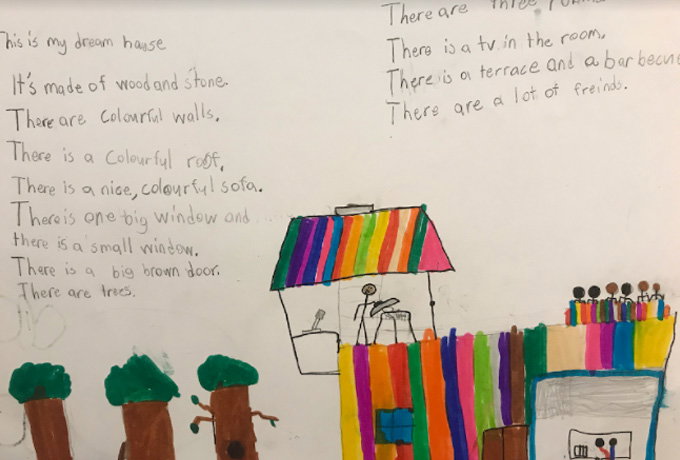 This is my dream house
It's made of wood and stone.
There are colourful walls.
There is a colourful roff.
There is a nice, colourful sofa.
There is one big window and
there is a small window.
There is a big brown door.
There are trees.
There are three
There is a tv in the room.
There is a terrace and a barbecue
There are a lot of freinds.